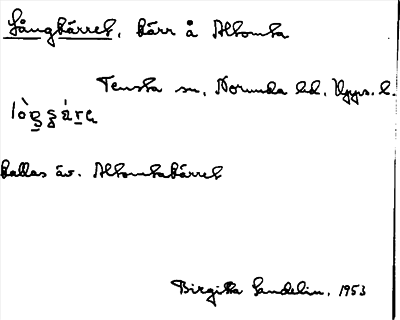 Långkärret, kärr å Altomta
Tensta sn, Norunda hd, Upps. l.
kallas äv. Altomtakärret
Birgitta Sundelin, 1953